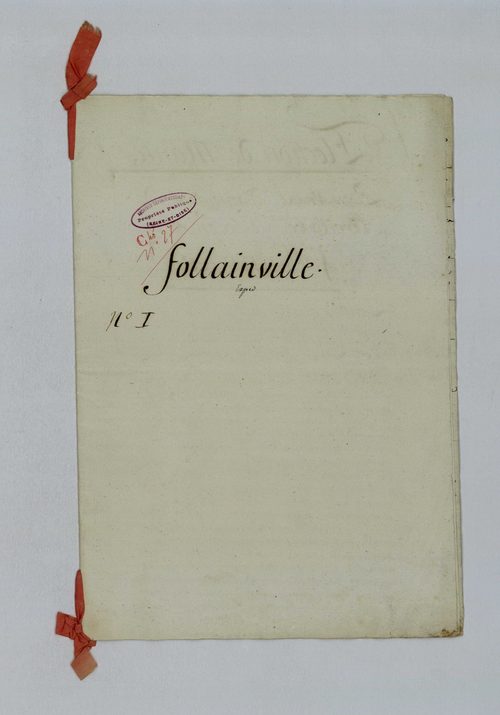 Propriété Publique
(SEINE-ET-OISE)
Con
n° 27
follainville.
N° I